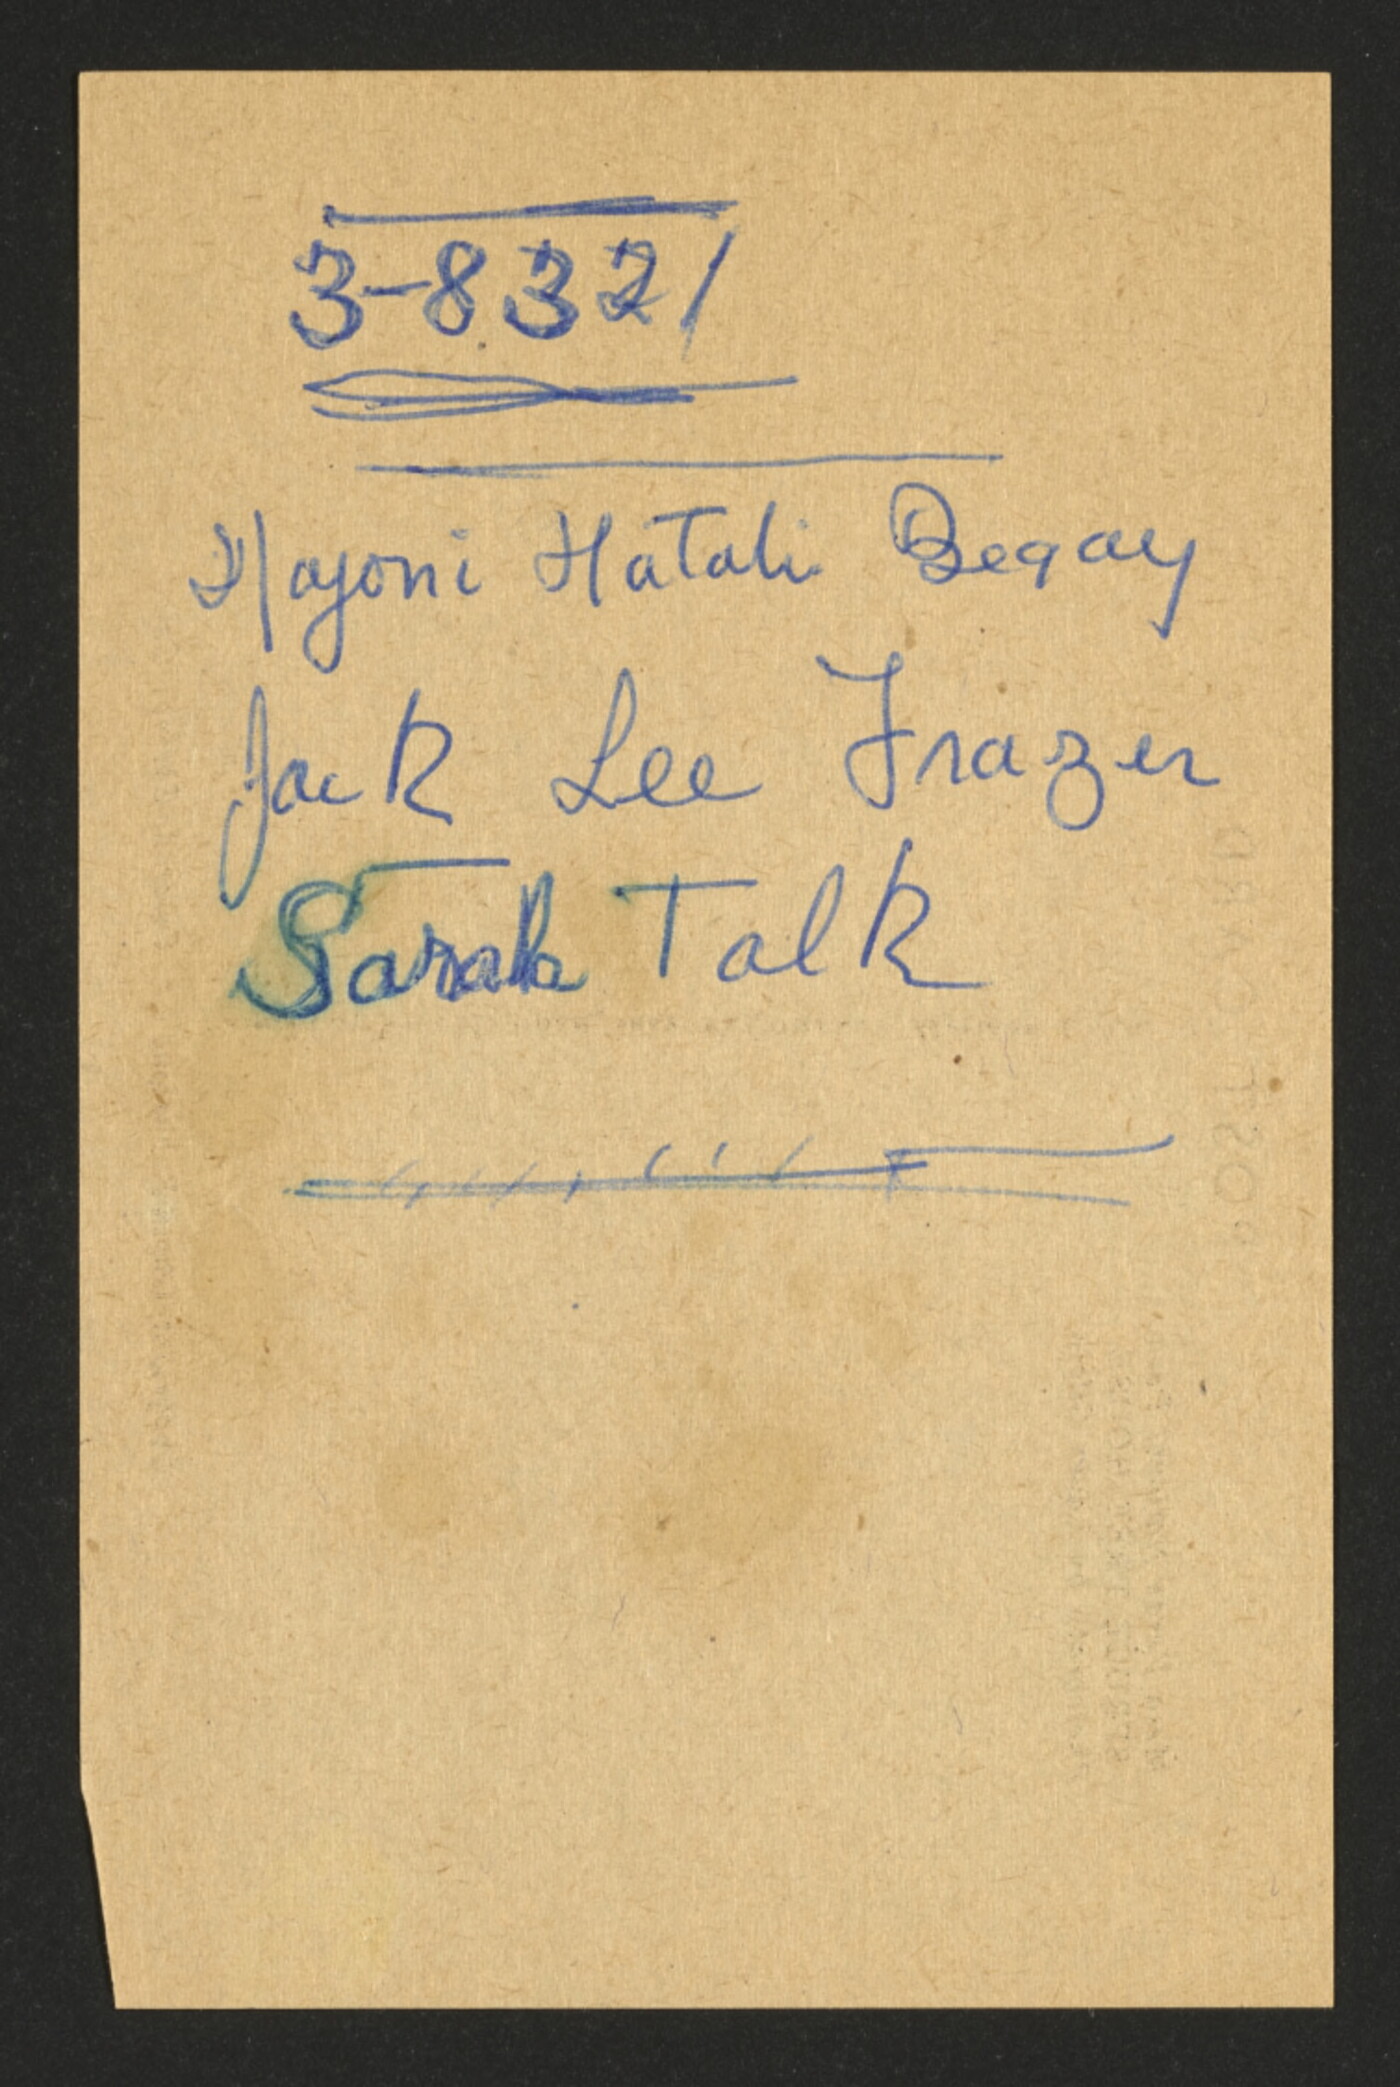 3-8321
Hojoni Hatali Begay
Jack Lee Frazer
Sarah Talk